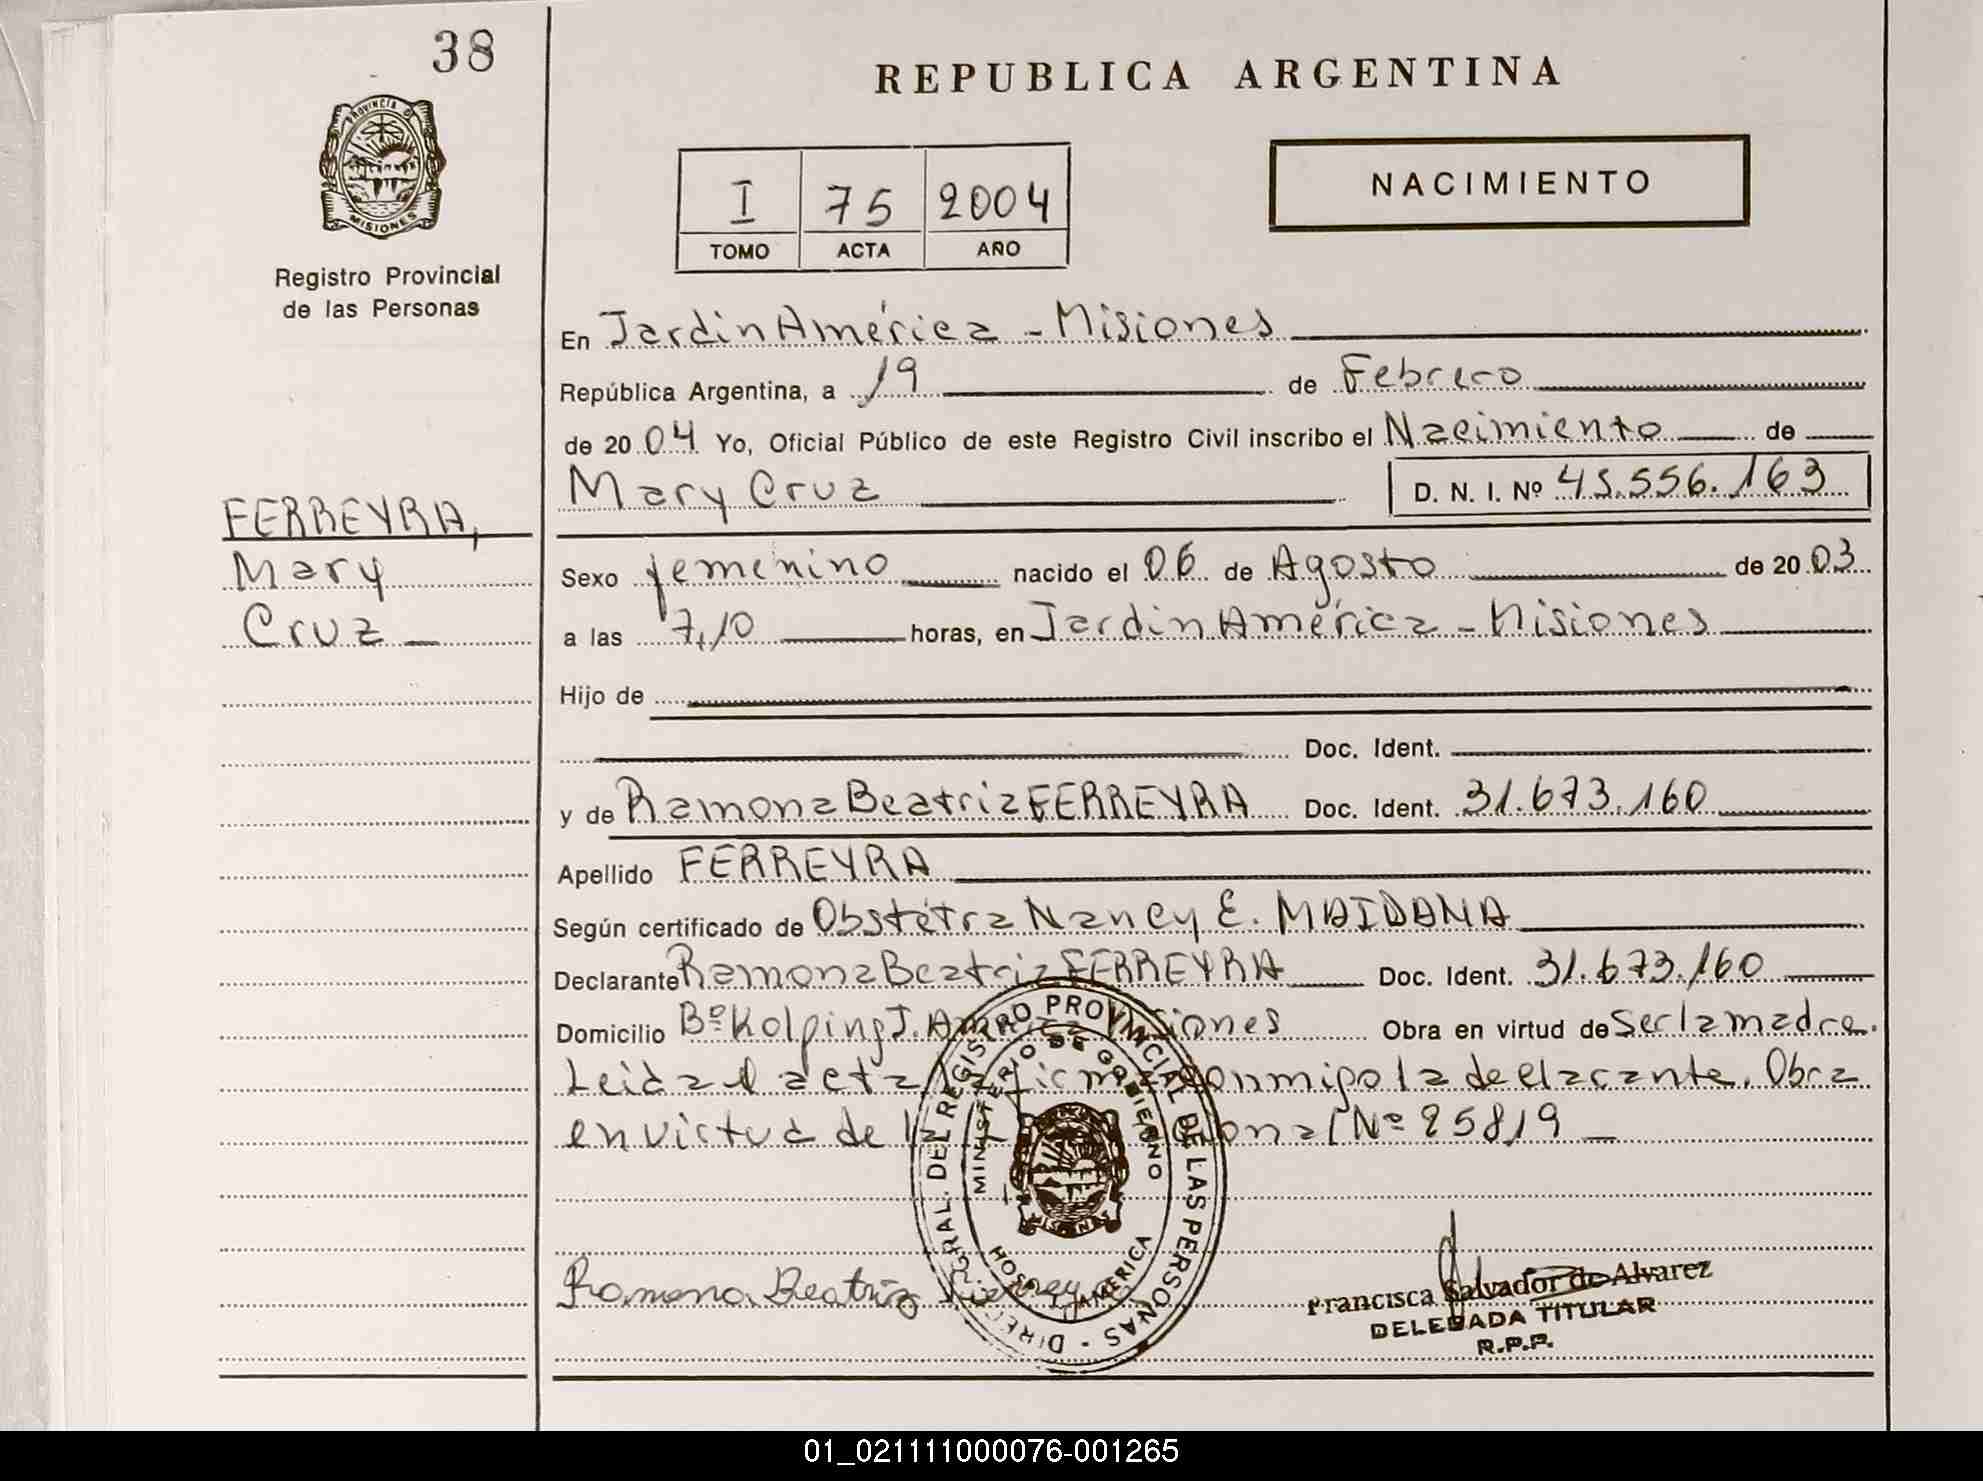 38
REPUBLICA ARGENTINA
PROVINCIA D MISIONES
Registro Provincial
de las Personas
I 75 2004
TOMO ACTA AÑO
NACIMIENTO
En Jardin América - Misiones
República Argentina, a 19 de Febrero
de 20 04 Yo, Oficial Público de este Registro Civil inscribo el Nacimiento de
Mary Cruz D. N. I. Nº 45.556.163
FERREYRA,
Mary
Cruz
Sexo femenino nacido el 06 de Agosto de 20 03
a las 7,10 horas, en Jardin América - Misiones
Hijo de
Doc. Ident.
y de Ramona Beatriz FERREYRA Doc. Ident. 31.673.160
Apellido FERREYRA
Según certificado de Obstétra Nancy E. MAIDANA
Declarante Ramona Beatriz FERREYRA Doc. Ident. 31.673.160
Domicilio Bº Kolping J. América Misiones Obra en virtud de Ser la madre.
Leida el acta firma conmigo la declarante. Obra
en virtud de Nº 25819
DIREC. GRAL. DEL REGISTRO PROVINCIAL DE LAS PERSONAS
MINISTERIO DE GOBIERNO
MISIONES
AMERICA
Ramona Beatriz
Francisca Salvador de Alvarez
DELEGADA TITULAR
R.P.P.
01_021111000076-001265